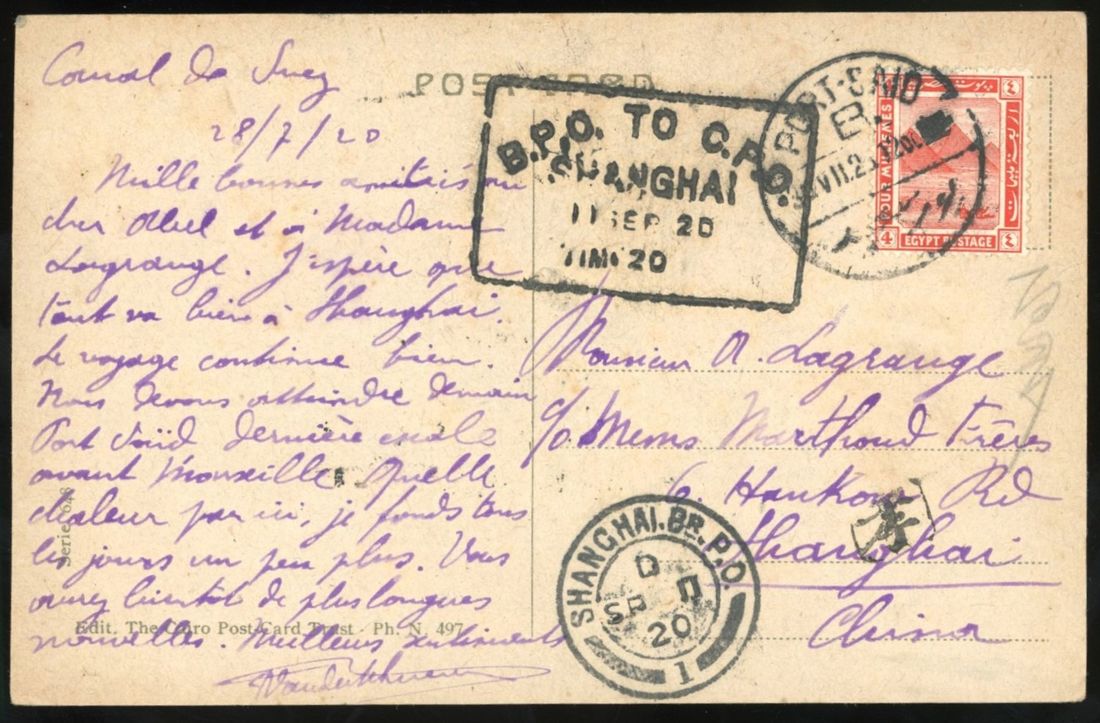 Canal de Suez
28/7/20
POST CARD
Mille bonnes amitiés au
cher Abel et à Madame
Lagrange. J'espère que
tout va bien à Shanghai.
Le voyage continue bien.
Nous devons atteindre demain
Port Saïd dernière escale
avant Marseille. Quelle
chaleur par ici, je fonds tous
les jours un peu plus. Vous
aurez bientôt de plus longues
nouvelles. Meilleurs sentiments
B.P.O. TO C.P.O.
SHANGHAI
11 SEP 20
TIME 20
PORT-SAID
4 POUR MILLIEMES
4 EGYPT POSTAGE
Monsieur A. Lagrange
c/o Mems Marthoud Frères
6. Hankow Rd
Shanghai
China
SHANGHAI.BR.P.O.
D
SP 11
20
1
Serie 648
Edit. The Cairo Post-Card Trust - Ph. N. 497